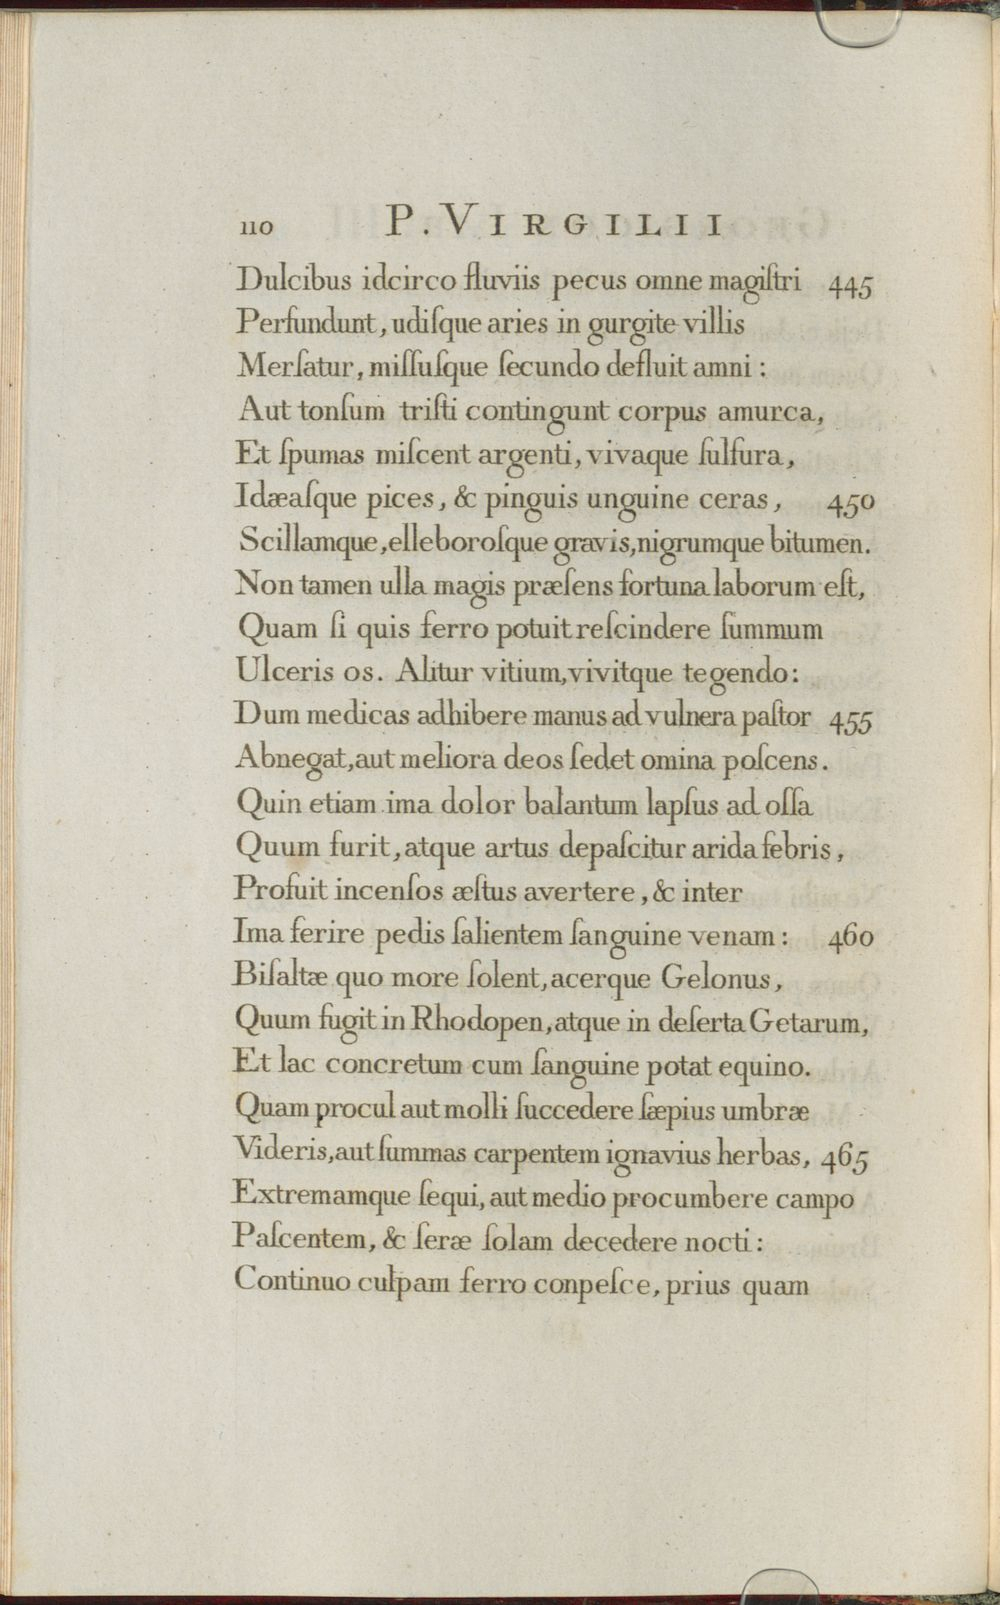 110 P. VIRGILII
Dulcibus idcirco fluviis pecus omne magiſtri 445
Perfundunt, udiſque aries in gurgite villis
Merſatur, miſſuſque ſecundo defluit amni:
Aut tonſum triſti contingunt corpus amurca,
Et ſpumas miſcent argenti, vivaque ſulfura,
Idæaſque pices, & pinguis unguine ceras, 450
Scillamque, elleboroſque gravis, nigrumque bitumen.
Non tamen ulla magis præſens fortuna laborum eſt,
Quam ſi quis ferro potuit reſcindere ſummum
Ulceris os. Alitur vitium, vivitque tegendo:
Dum medicas adhibere manus ad vulnera paſtor 455
Abnegat, aut meliora deos ſedet omina poſcens.
Quin etiam ima dolor balantum lapſus ad oſſa
Quum furit, atque artus depaſcitur arida febris,
Profuit incenſos æſtus avertere, & inter
Ima ferire pedis ſalientem ſanguine venam: 460
Biſaltæ quo more ſolent, acerque Gelonus,
Quum fugit in Rhodopen, atque in deſerta Getarum,
Et lac concretum cum ſanguine potat equino.
Quam procul aut molli ſuccedere ſæpius umbræ
Videris, aut ſummas carpentem ignavius herbas, 465
Extremamque ſequi, aut medio procumbere campo
Paſcentem, & ſeræ ſolam decedere nocti:
Continuo culpam ferro conpeſce, prius quam